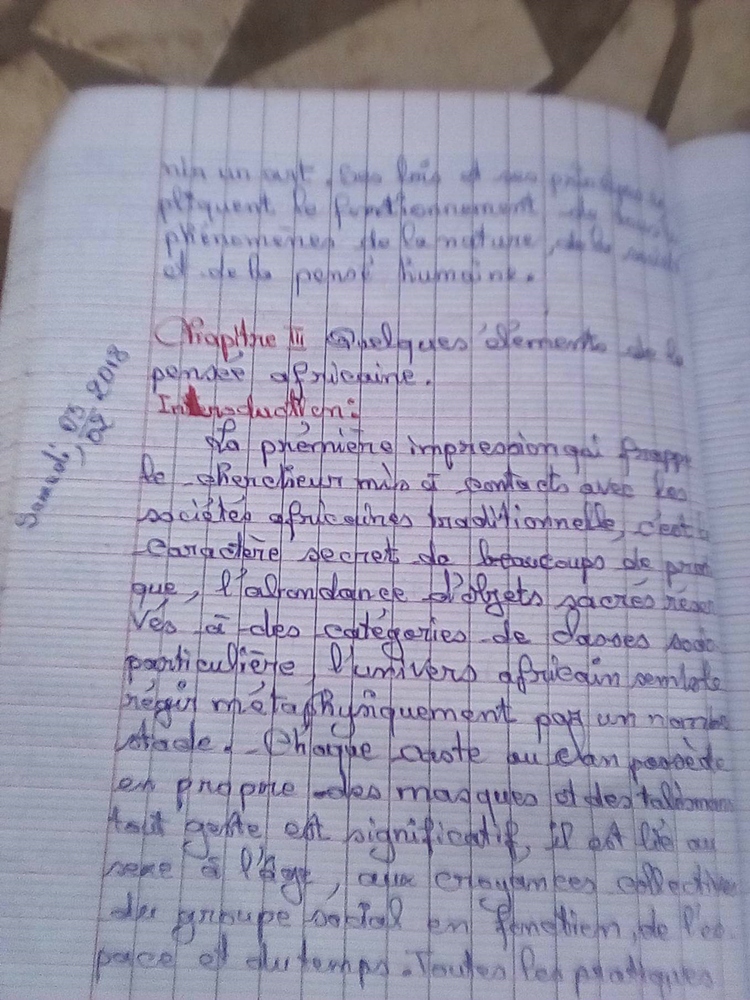 ses lois et ses
pliquent le fonthonnement de
phénomènes de la nature, de la
et de la pensé humaine.
Chapitre III Quelques élements de la
pensée africaine.
Introduction:
Samedi, 03/02/2018
La prémière impression qui frapp
le chercheur mis à contacts avec les
sociétés africaines traditionnelle, c'est
caractère secret de beaucoups de prat
que, l'abondance d'objets sacrés réser
vés à des catégories de classes soc
particulière, l'univers africain semble
régir métaphysiquement par un nombre
stade. Chaque caste ou clan possède
en propre des masques et des talismans
tout geste est significatif, Il est lié au
sexe à l'âge, aux croyances collective
du groupe social en fonction, de l'es
pace et du temps. Toutes les pratiques